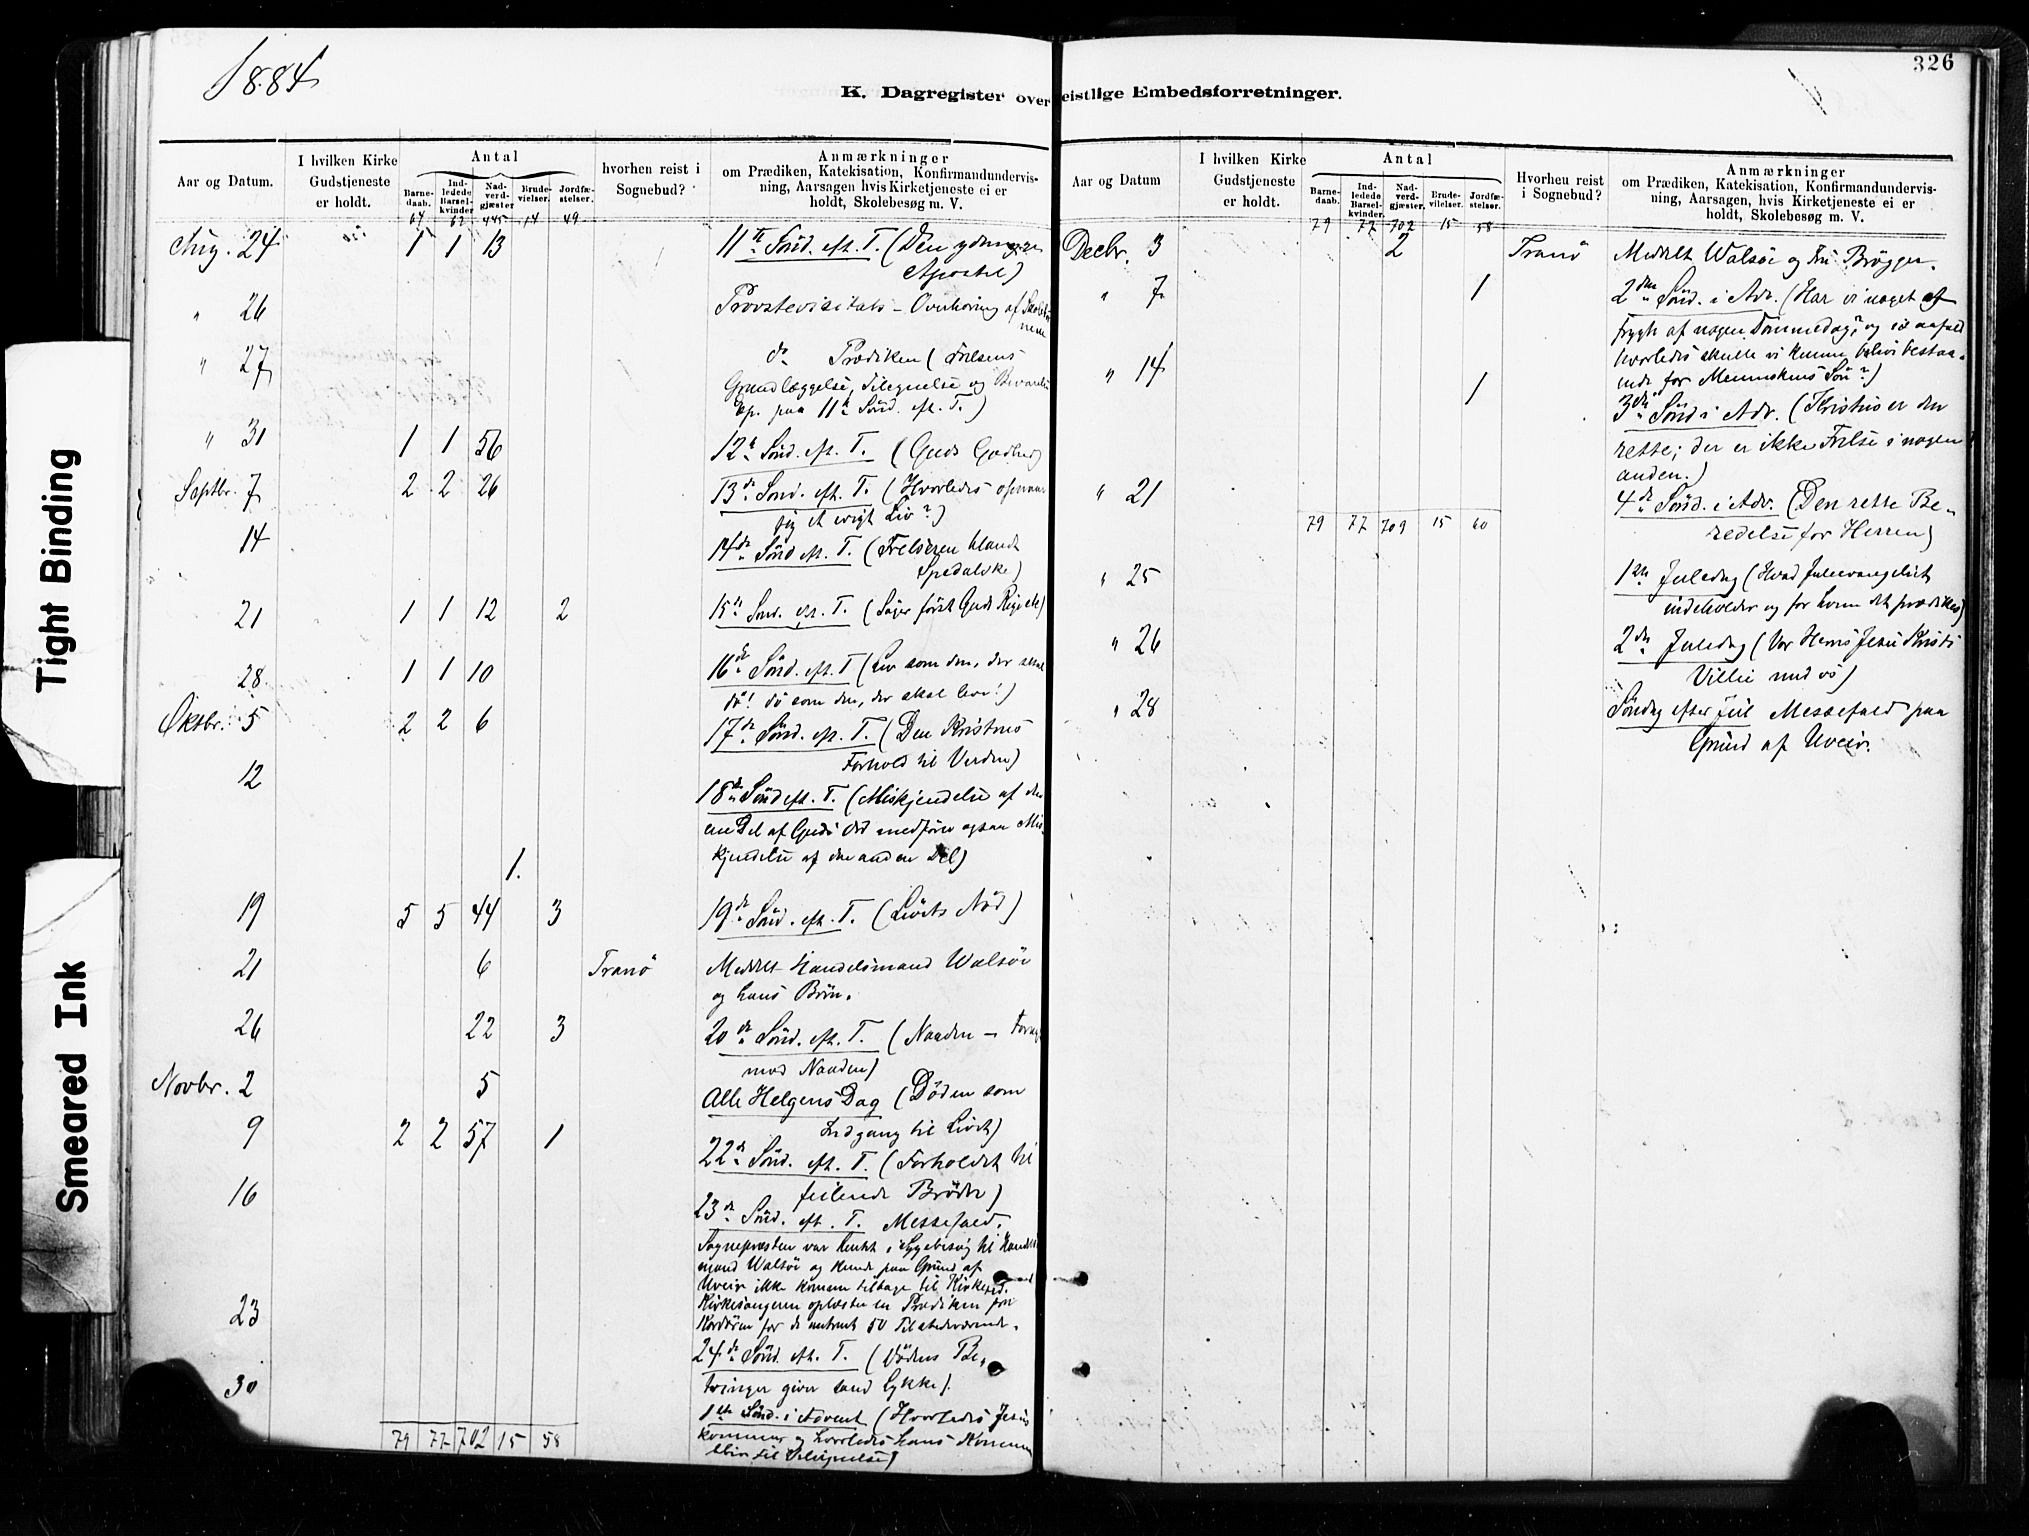 1884
K. Dagregister over
Aar og Datum.
I hvilken Kirke
Gudstjeneste
er holdt.
Antal
Barne-
daab.
Ind-
ledede
Barsel-
kvinder
Nad-
verd-
gjæster
Brude-
vielser.
Jordfæ-
stelser.
hvorhen reist i
Sognebud?
Anmærkninger
om Prædiken, Katekisation, Konfirmandundervis-
ning, Aarsagen hvis Kirketjeneste ei er
holdt, Skolebesøg m. V.
67 62 445 14 49
Aug. 24 1 1 13 11te Sönd. eft. T. (Den
Apostel)
" 26 Provstevisitats - Overhöring af
" 27 do Prædiken (Frelsens
Grundlæggelse, Tilegnelse og
Ep. paa 11te Sönd. eft. T.)
" 31 1 1 56 12te Sönd. eft. T. (Guds
Septbr. 7 2 2 26 13de Sönd. eft. T. (Hvorledes opnaar
jeg et evigt Liv?)
14 14de Sönd. eft. T. (Frelseren blandt
Spedalske)
21 1 1 12 2 15de Sönd. eft. T. (Söger först Guds Rige etc)
28 1 1 10 16de Sönd. eft. T (Lev som den, der skal
dö! dö som den, der skal leve!)
Øktbr. 5 2 2 6 17de Sönd. eft. T. (Den Kristnes
Forhold til Verden)
12 18de Sönd. eft. T. (Miskjendelse af den
ene Del af Guds Ord medförer ogsaa Mis-
1. kjendelse af den anden Del)
19 5 5 44 3 19de Sönd. eft. T. (Livets Nöd)
21 6 Tranö Meddelt Handelsmand Walsöe
og hans Börn.
26 22 3 20de Sönd. eft. T. (Naaden -
mod Naaden)
Novbr. 2 5 Alle Helgens Dag (Döden som
Indgang til Livet)
9 2 2 57 1 22de Sönd. eft. T. (Forholdet til
feilende Brödre)
16 23de Sönd. eft. T. Messefald.
Sognepræsten var hentet i Sygebesög til Handels
mand Walsöe og kunde paa Grund af
Uveir ikke komme tilbage til Kirkested.
Kirkesangeren oplæste en Prædiken fra
Kordören for de omtrent 50 Tilstedeværende.
23 24de Sönd. eft. T. (Dödens Be-
tvinger giver sand Lykke).
30 1ste Sönd. i Advent (Hvorledes Jesus
kommer og hvorledes hans Komme
bliver til Velsignelse)
79 77 702 15 58
326
eistlige Embedsforretninger.
Aar og Datum
I hvilken Kirke
Gudstjeneste
er holdt.
Antal
Barne-
daab.
Ind-
ledede
Barsel-
kvinder.
Nad-
verd-
gjæster
Brude-
vielser.
Jordfæ-
stelser.
Hvorheu reist
i Sognebud?
Anmærkninger
om Prædiken, Katekisation, Konfirmandundervis-
ning, Aarsagen, hvis Kirketjeneste ei er
holdt, Skolebesøg m. V.
79 77 702 15 58
Decbr. 3 2 Tranö Meddelt Walsöe og Fru Brögger.
" 7 1 2den Sönd. i Adv. (Har vi noget at
frygte af nogen Dommedag? og i saafald
hvorledes skulle vi kunne blive bestaa-
ende for Menneskens Sön?)
" 14 1 3die Sönd i Adv. (Kristus er den
rette; der er ikke Frelse i nogen
anden.)
" 21 4de Sönd. i Adv. (Den rette Be-
redelse for Herren)
79 77 709 15 60
" 25 1ste Juledag (Hvad Juleevangeliet
indeholder og for hvem det prædikes)
" 26 2den Juledag (Vor Herres Jesu Kristi
Villie med os)
" 28 Söndag efter Jul Messefald paa
Grund af Uveir.
Tight Binding
Smeared Ink